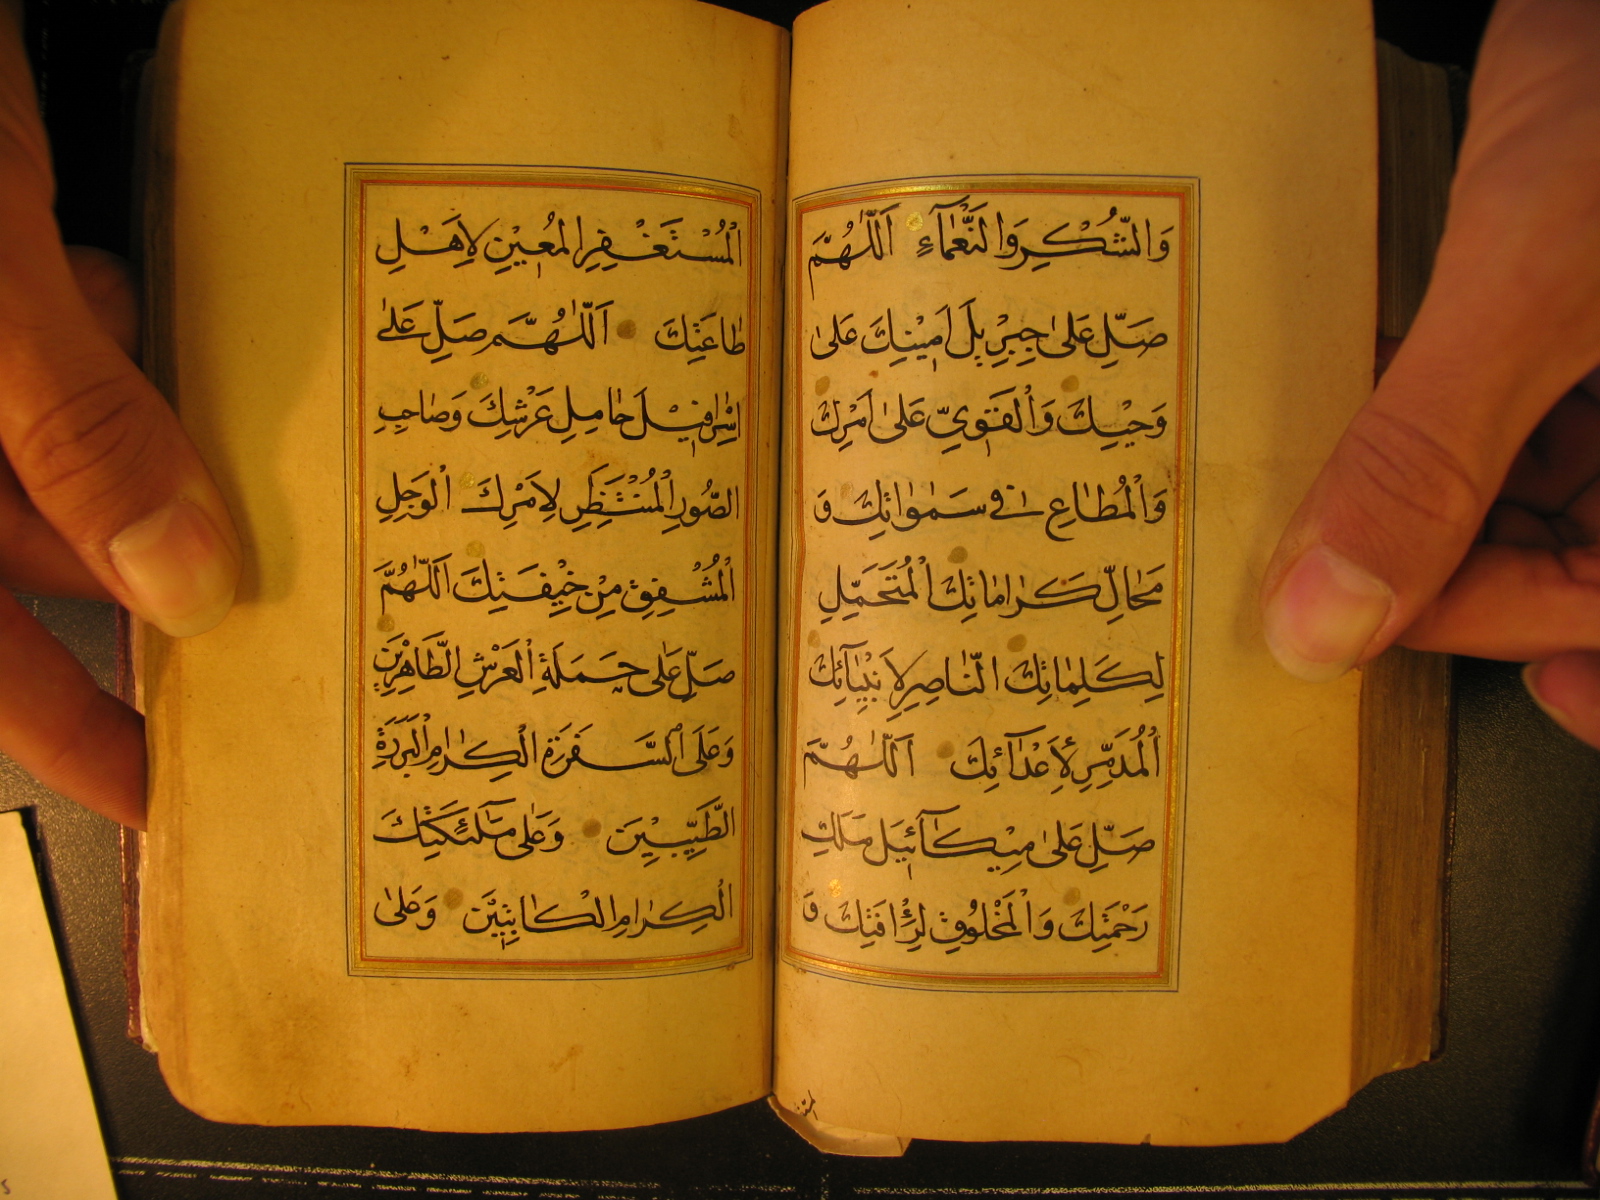 وَالشُّكْرِ وَالنَّعْمَاءِ اَللّٰهُمَّ
صَلِّ عَلىٰ جِبْرِيلَ اَمِيْنِكَ عَلىٰ
وَحْيِكَ وَالْقَوِيِّ عَلىٰ اَمْرِكَ
وَالْمُطَاعِ فِي سَمٰوَاتِكَ وَ
مَحَالِّ كَرَامَاتِكَ الْمُتَحَمِّلِ
لِكَلِمَاتِكَ النَّاصِرِ لِاَنْبِيَآئِكَ
الْمُدَمِّرِ لِأَعْدَآئِكَ اَللّٰهُمَّ
صَلِّ عَلىٰ مِيْكَآئِيلَ مَلَكِ
رَحْمَتِكَ وَالْمَخْلُوقِ لِرَأْفَتِكَ وَ
المستغفر
الْمُسْتَغْفِرِ الْمُعِيْنِ لِاَهْلِ
طَاعَتِكَ اَللّٰهُمَّ صَلِّ عَلىٰ
اِسْرَافِيْلَ حَامِلِ عَرْشِكَ وَصَاحِبِ
الصُّورِ الْمُنْتَظِرِ لِاَمْرِكَ الْوَجِلِ
الْمُشْفِقِ مِنْ خِيْفَتِكَ اَللّٰهُمَّ
صَلِّ عَلىٰ حَمَلَةِ الْعَرْشِ الطَّاهِرِيْنَ
وَعَلَى السَّفَرَةِ الْكِرَامِ الْبَرَرَةِ
الطَّيِّبِيْنَ وَعَلىٰ مَلٰٓئِكَتِكَ
الْكِرَامِ الْكَاتِبِيْنَ وَعَلىٰ